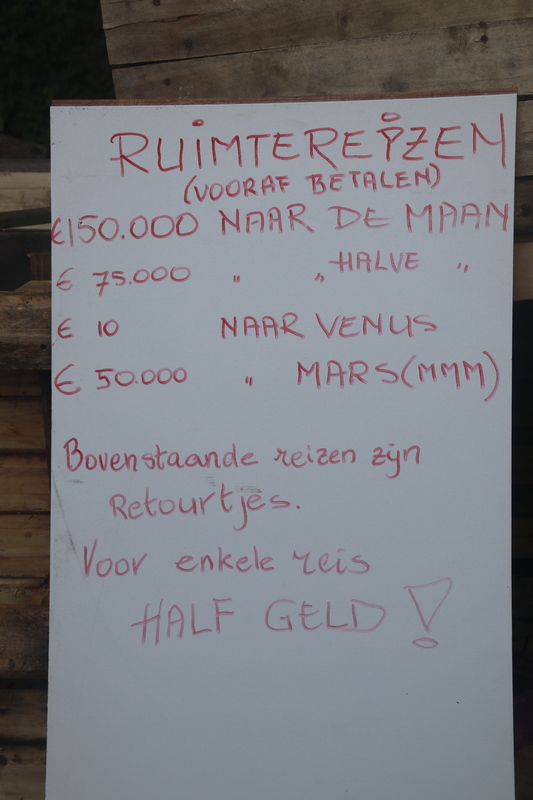 RUIMTEREIJZEN
(VOORAF BETALEN)
€150.000 NAAR DE MAAN
€ 75.000 " " HALVE "
€ 10 NAAR VENUS
€ 50.000 " MARS(MMM)
Bovenstaande reizen zijn
Retourtjes.
Voor enkele reis
HALF GELD!